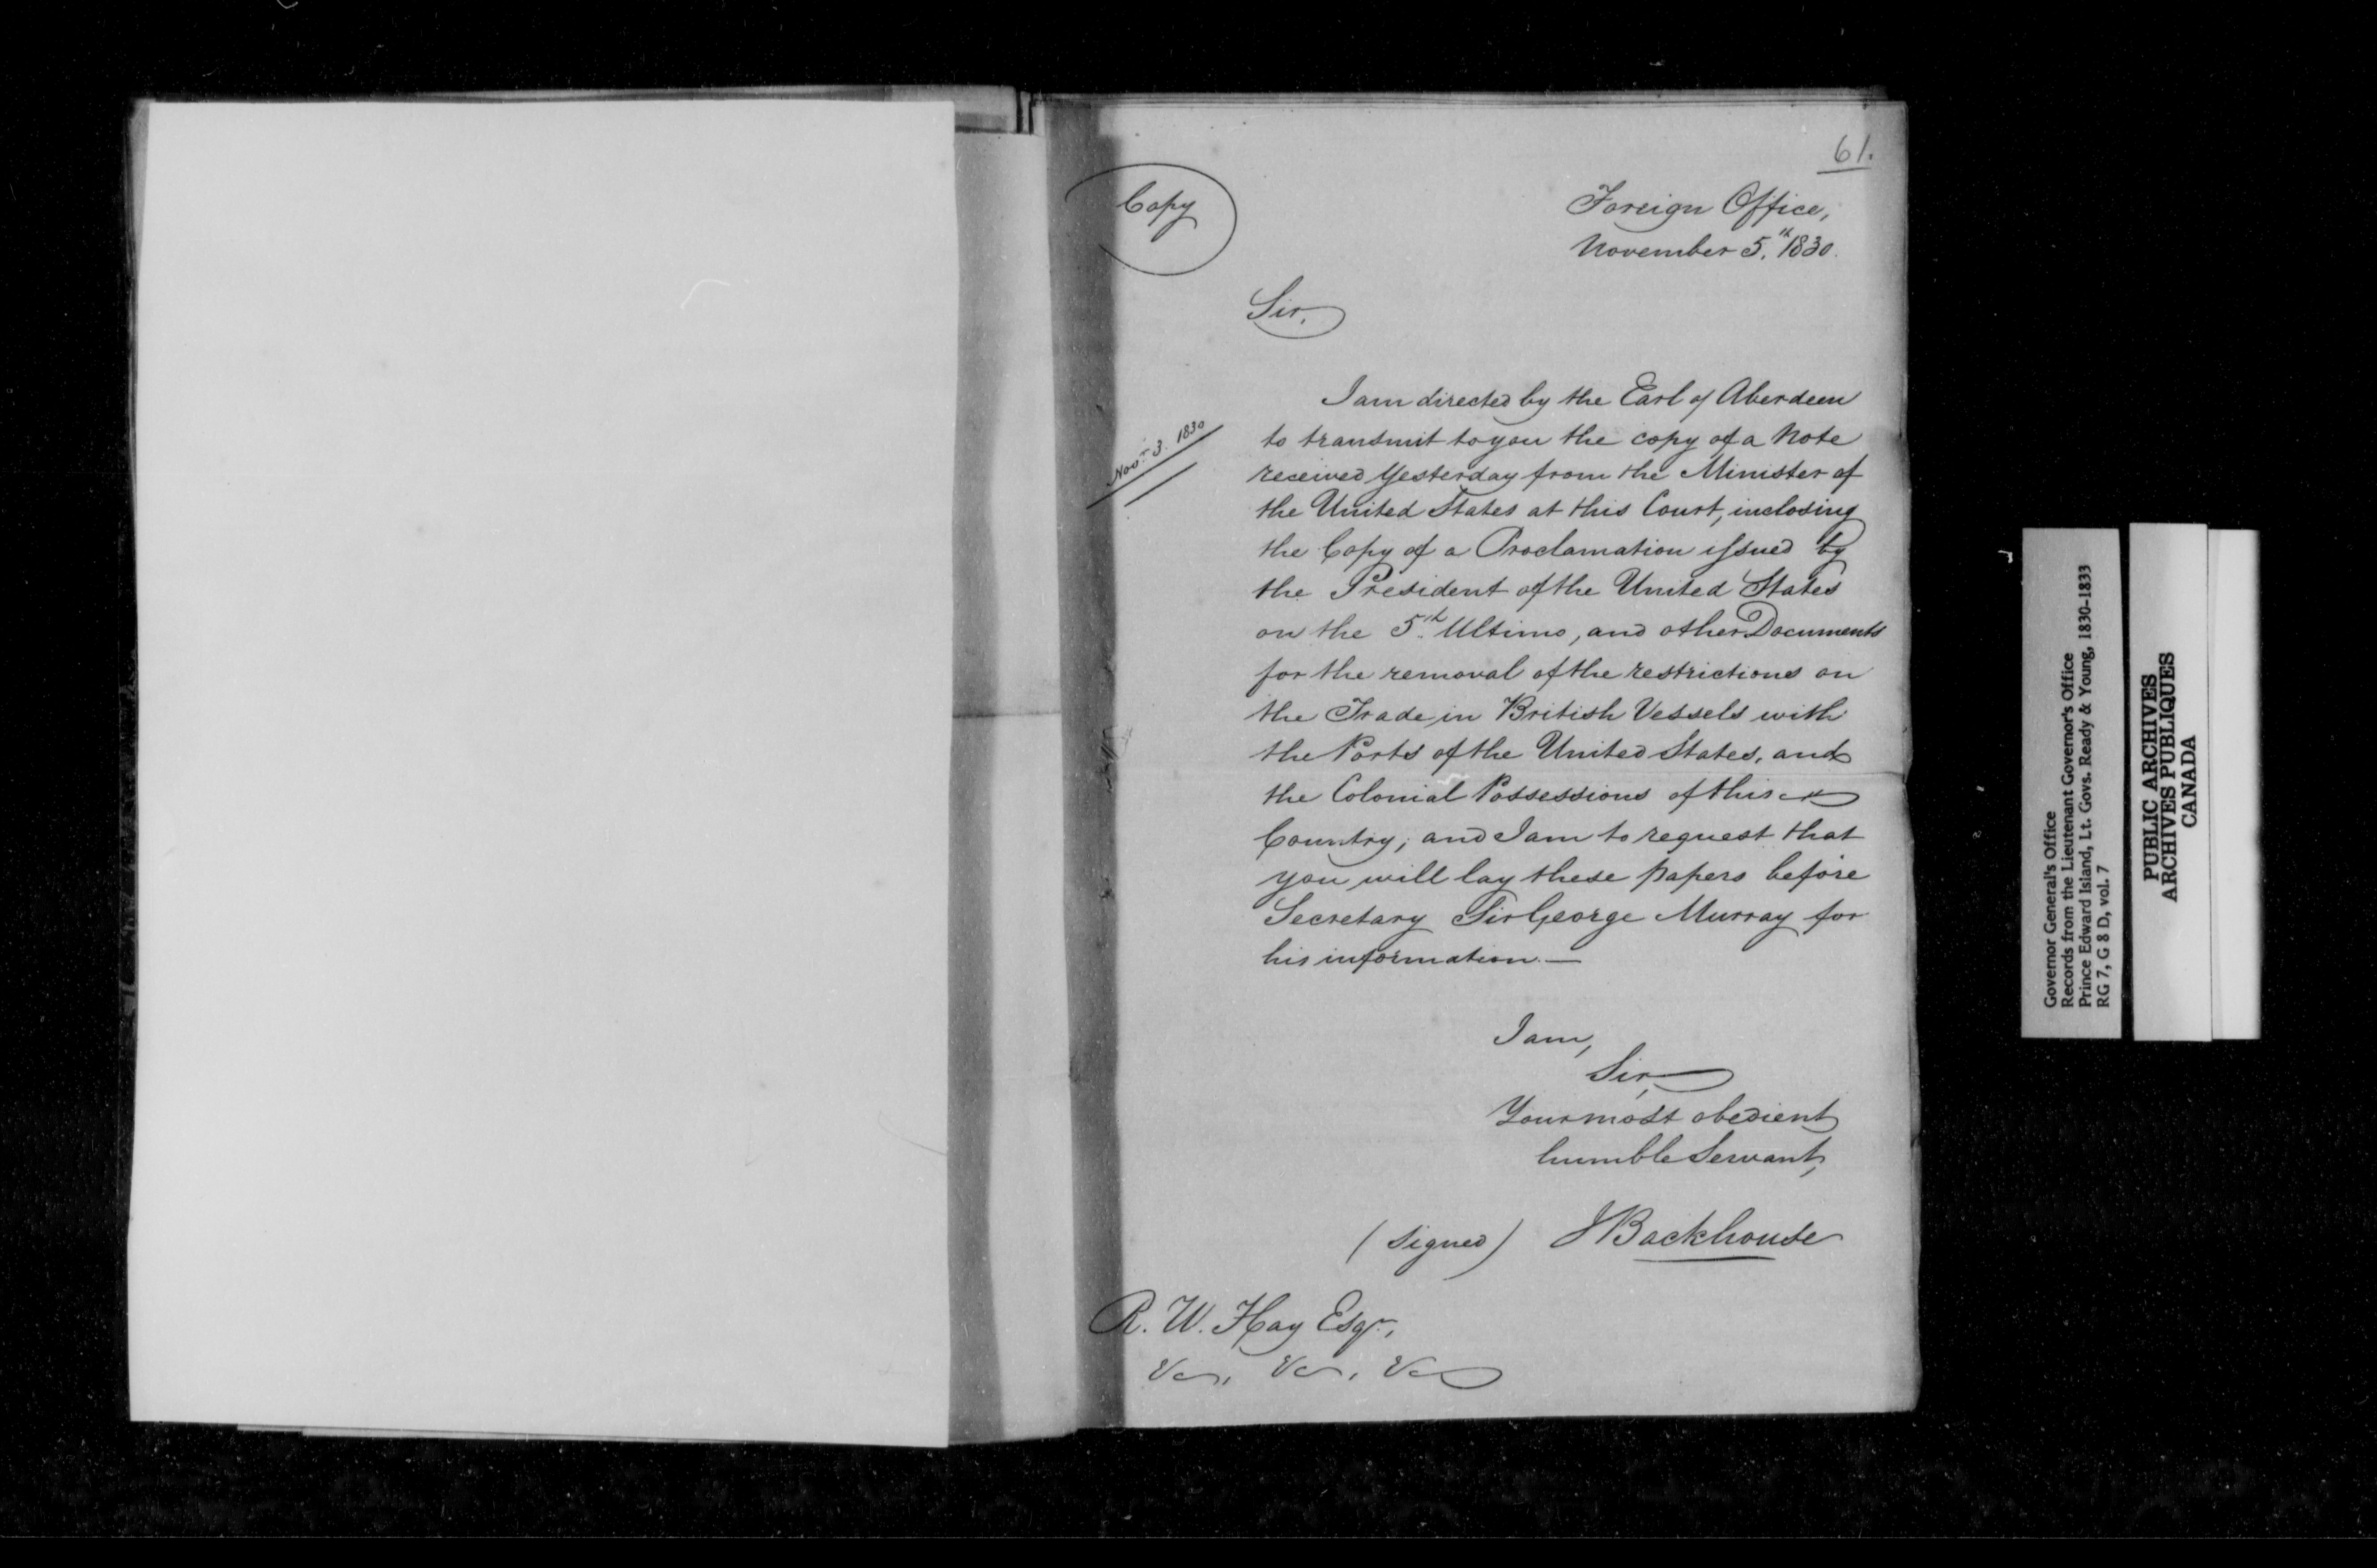 61.
Copy
Foreign Office,
November 5.th 1830.
Sir,
I am directed by the Earl of Aberdeen
to transmit to you the copy of a Note
Novr. 3. 1830
received Yesterday from the Minister of
the United States at this Court, inclosing
the Copy of a Proclamation issued by
the President of the United States
on the 5.th Ultimo, and other Documents
for the removal of the restrictions on
the Trade in British Vessels with
the Ports of the United States, and
the Colonial Possessions of this
Country; and I am to request that
you will lay these papers before
Secretary Sir George Murray for
his information.—
I am,
Sir,
Your most obedient
humble Servant,
(signed) J Backhouse
R. W. Hay Esqr.,
&c, &c, &c
Governor General's Office
Records from the Lieutenant Governor's Office
Prince Edward Island, Lt. Govs. Ready & Young, 1830-1833
RG 7, G 8 D, vol. 7
PUBLIC ARCHIVES
ARCHIVES PUBLIQUES
CANADA